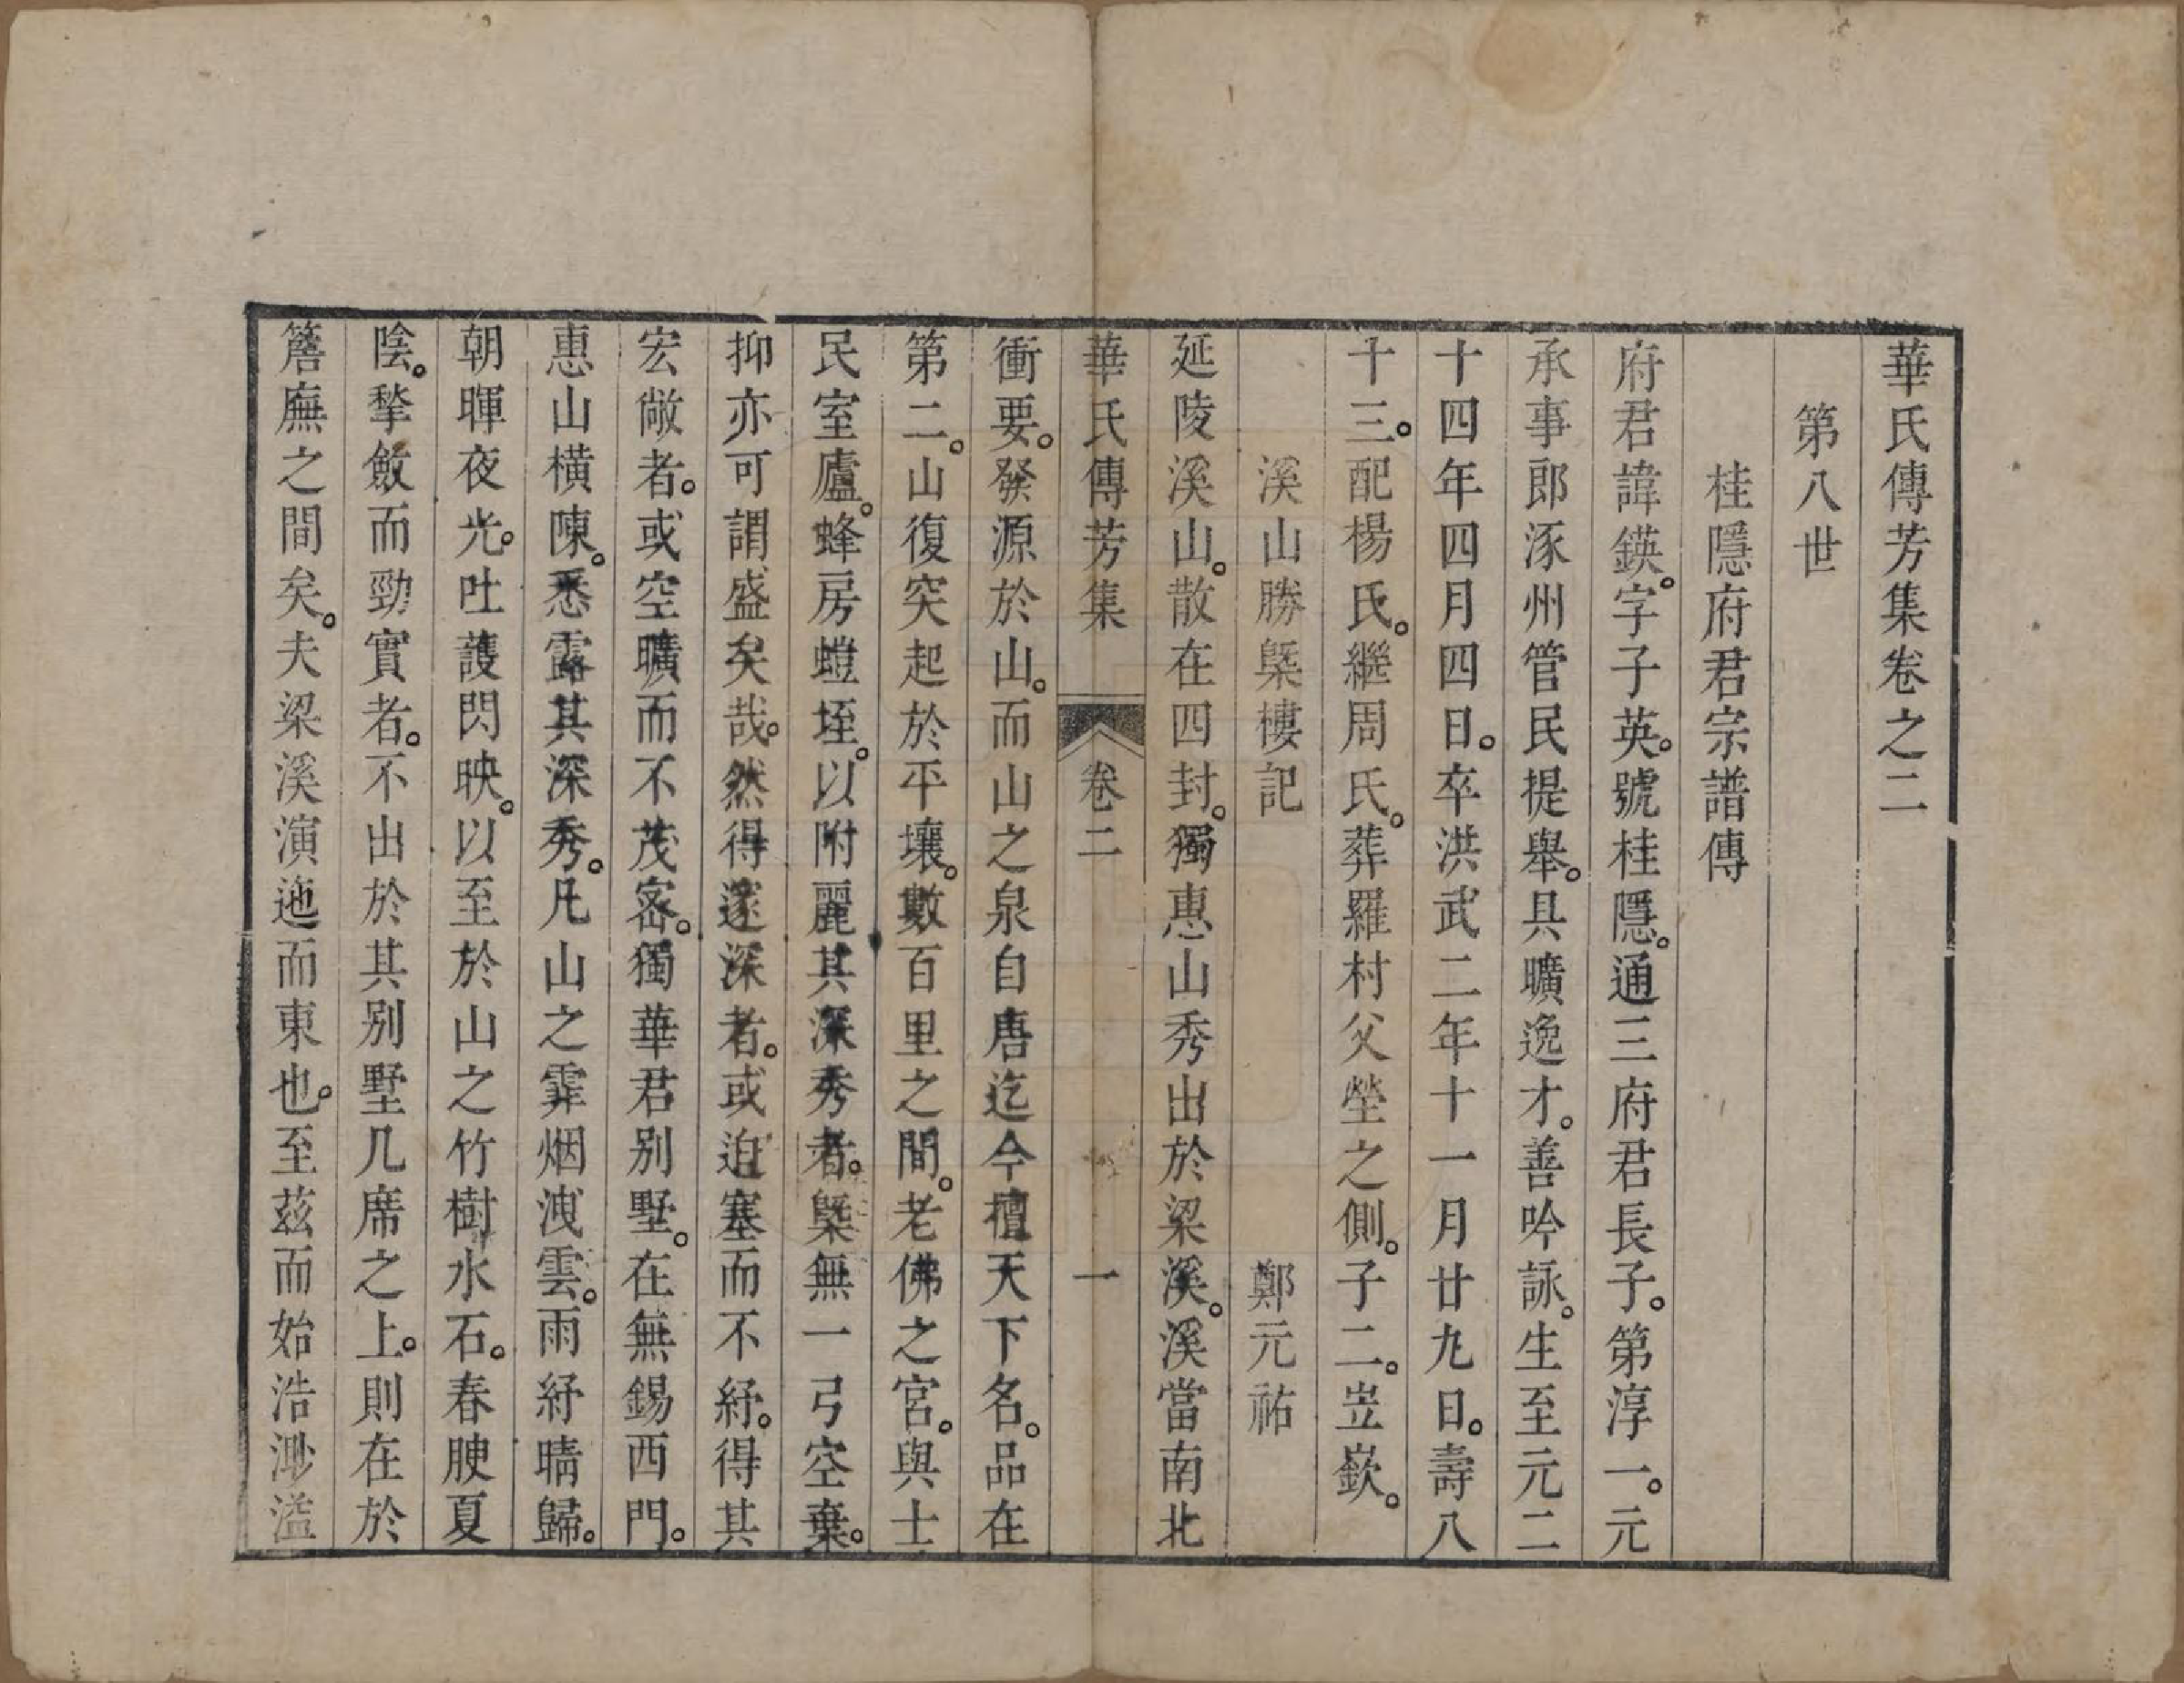 華氏傳芳集卷之二
第八世
桂隱府君宗譜傳
府君諱鍈。字子英。號桂隱。通三府君長子。第淳一。元
承事郎涿州管民提舉。具曠逸才。善吟詠。生至元二
十四年四月四日。卒洪武二年十一月廿九日。壽八
十三。配楊氏。繼周氏。葬羅村父塋之側。子二。岦嶔。
溪山勝槩樓記 鄭元祐
延陵溪山。散在四封。獨惠山秀出於梁溪。溪當南北
華氏傳芳集 卷二 一
衝要。發源於山。而山之泉自唐迄今擅天下名。品在
第二。山復突起於平壤。數百里之間。老佛之宮。與士
民室廬。蜂房螘垤。以附麗其深秀者。槩無一弓空棄。
抑亦可謂盛矣哉。然得邃深者。或迫塞而不紓。得其
宏敞者。或空曠而不茂密。獨華君别墅。在無錫西門。
惠山橫陳。悉露其深秀。凡山之霏烟洩雲。雨紓晴歸。
朝暉夜光。吐護閃映。以至於山之竹樹水石。春腴夏
陰。揫斂而勁實者。不出於其别墅几席之上。則在於
簷廡之間矣。夫梁溪演迤而東也。至茲而始浩渺溢